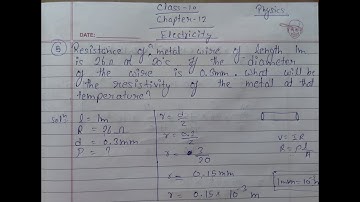 Class-10
Chapter-12
Physics
DATE:
Electricity
⑤ Resistance of a metal wire of length 1m
is 26Ω at 20°c if the diameter
of the wire is 0.3mm. what will be
the resistivity of the metal at that
temperature?
Solⁿ l = 1m
R = 26 Ω
d = 0.3mm
ρ = ?
r = d/2
r = 0.3/2
r = 3/20
r = 0.15mm
r = 0.15 × 10⁻³ m
V = IR
R = ρl/A
[1mm=10⁻³